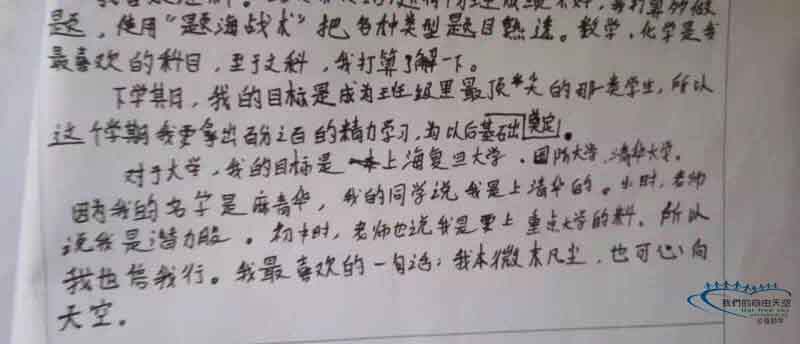 题，使用“题海战术”把各种类型题目熟透。数学，化学是我
最喜欢的科目，至于文科，我打算了解一下。
下学其月，我的目标是成为班级里最顶尖的那类学生，所以
这个学期我要拿出百分之百的精力学习，为以后基础出奠定。
对于大学，我的目标是上海复旦大学．国防大学，清华大学。
因为我的名字是麻青华，我的同学说我是上清华的。小时，老师
说我是潜力股。初中时，老师也说我是要上重点大学的料，所以
我也信我行。我最喜欢的一句话：我本微末凡尘，也可心向
天空。
我們的自由天空
Our free sky
公益助学